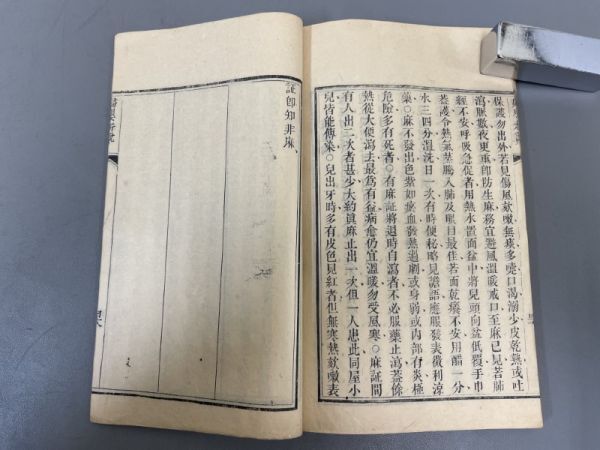 保護勿出外若見傷風欬嗽無痰多嚏口渴溺少皮乾熱或吐
瀉脈數夜更重卽防生麻務宜避風溫暖戒口至麻已見若肺
經不安呼吸急促者用熱水置面盆中將兒頭向盆低覆手巾
葢護令熱氣蒸騰入肺及眼目最佳若面乾癢不安用醋一分
水三四分溫洗日一次有時便秘略見譫語應服發表微利涼
藥○麻不發出色紫如瘀血發熱過劇或身弱或內部有炎極
危險多有死者○有麻証將退時自瀉者不必服藥止瀉葢餘
熱從大便瀉去最爲有益病愈仍宜溫暖勿受風寒○麻証間
有人出二次者甚少大約眞麻止出一次但一人患此同屋小
兒皆能傳染○兒出牙時多有皮色見紅者但無寒熱欬嗽表
証卽知非麻